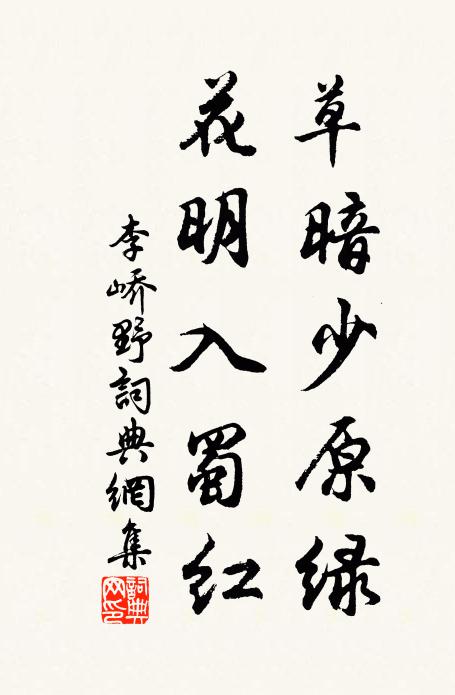 草暗少原绿
花明入蜀红
李峤野詞典網集
詞典网印